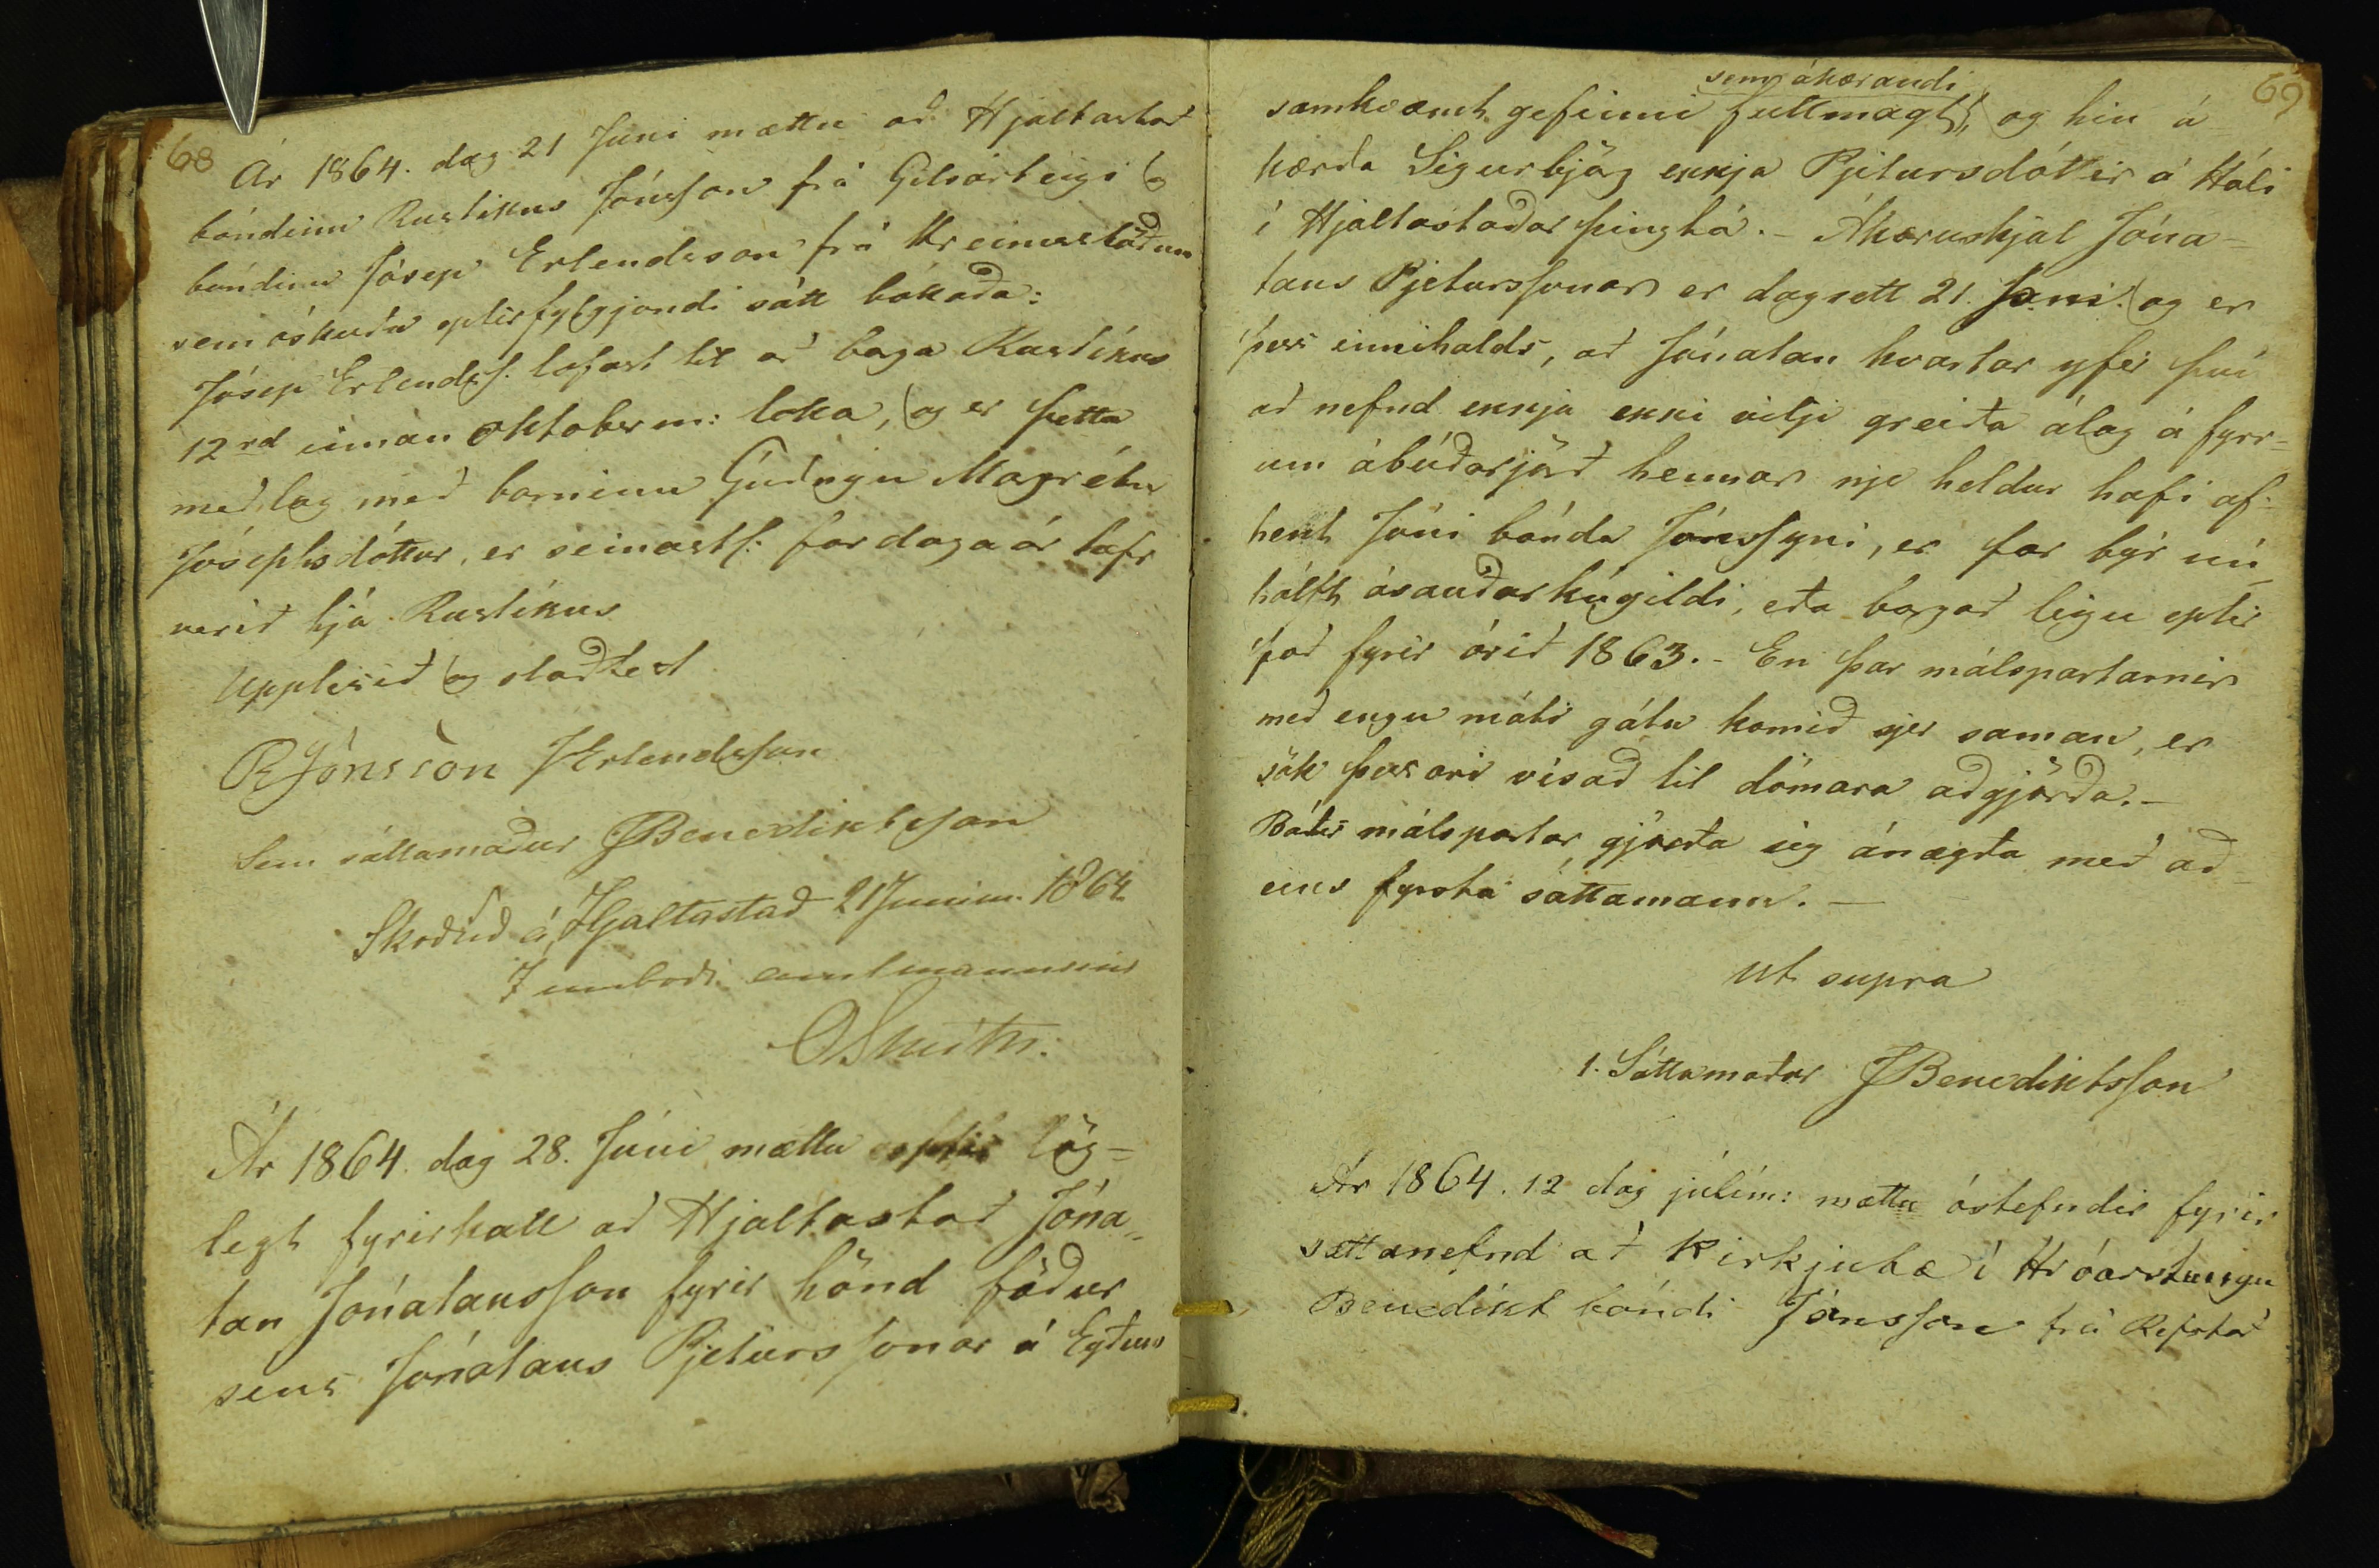 68
Ár 1864. dag 21 Júni mættu að Hjaltastað
bóndinn Rustikus Jónsson frá Gilsárteigi og
bóndinn Jósep Erlendsson frá Hreimsstöðum
sem óskuðu eptirfylgjandi sátt bókaða:
Jósep Erlendss. lofast til að borga Rustíkus
12 rd innan Oktober m: loka, og er þetta
meðlag með barninu Guðnýu Magrétu
Jósephsdóttur, er seinastl. fardagaár hefr
verið hjá Rustíkus
Upplesið og staðfest
RJónsson JErlendsson
Sem sáttamaður JBenediktsson
Skoðuð á Hjaltastað 21 Junim. 1864
Í umboði amtmannsins
OSmith.
Ár 1864. dag 28. Júni mættu eptir lög=
legt fyrirkall að Hjaltastað Jóna=
tan Jónatansson fyrir hönd föður
sins Jónatans Pjeturssonar á Eyðum
69
sem ákærandi
samkvæmt gefinni fullmagt, og hin á=
kærða Sigurbjög ekkja Pjetursdóttir á Hóli
í Hjaltastaðarþinghá. - Ákæruskjal Jóna=
tans Pjeturssonar er dagsett 21. Júni. og er
þess innihalds, að Jónatan kvartar yfir því
að nefnd ekkja ekki vilji greiða álag á fyrr=
um ábúðarjörð hennar nje heldur hafi af=
hent Jóni bónda Jónssyni, er þar býr nú
hálft ásauðarkúgildi, eða borgað leigu eptir
það fyrir árið 1863. - En þar málspartarnir
með engu móti gátu komið sjer saman, er
sök þessari vísað til dómara aðgjörða. -
Báðir málspartar gjörða sig ánægða með að=
eins fyrsta sáttamann. -
Ut supra
1. Sáttamaður JBenediktsson
Ár 1864. 12 dag júlím: mættu óstefndir fyrir
sættanefnd að Kirkjubæ í Hróarstungu
Benedikt bóndi Jónsson frá Refstað